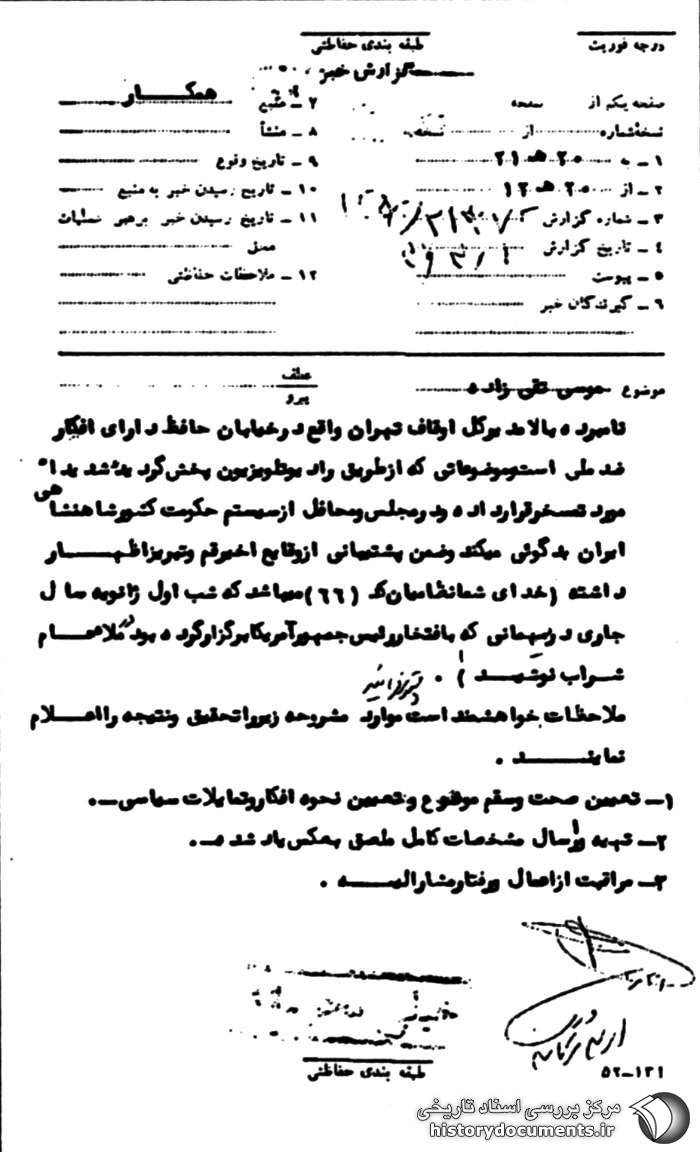 درجه فوریت
طبقه بندی حفاظتی
گزارش خبر
صفحه یکم از صفحه
نسخه شماره از نسخه
۱ ـ به ۲۰ هـ ۲۱
۲ ـ از ۲۰ هـ ۱۲
۳ ـ شماره گزارش
۴ ـ تاریخ گزارش
۵ ـ پیوست
۶ ـ گیرندگان خبر
۷ ـ منبع همکار
۸ ـ منشأ
۹ ـ تاریخ وقوع
۱۰ ـ تاریخ رسیدن خبر به منبع
۱۱ ـ تاریخ رسیدن خبر برهبر عملیات
محل
۱۲ ـ ملاحظات حفاظتی
موضوع موسی تقی زاده
عطف
پیرو
نامبرده بالا مدیرکل اوقاف تهران واقع در خیابان حافظ دارای افکار
ضد ملی است و موضوعاتی که از طریق رادیو تلویزیون پخش گردیده شدیدا"
مورد تمسخر قرار داده و در مجلس و محافل از سیستم حکومت کشور شاهنشاهی
ایران بدگوئی میکند و ضمن پشتیبانی از وقایع اخیر قم و تبریز اظهار
داشته (خدای شما نظامیان که (۶۶) میباشد که شب اول ژانویه سال
جاری در میهمانی که بافتخار رئیس جمهور آمریکا برگزار کرده بود در ملاعام
شراب نوشید) .
ملاحظات: خواهشمند است موارد مشروحه زیر را تحقیق و نتیجه را اعلام
نمایند .
۱ـ تعیین صحت و سقم موضوع و تعیین نحوه افکار و تمایلات سیاسی ـ .
۲ـ تهیه و ارسال مشخصات کامل ملصق بعکس یاد شده ـ .
۳ـ مراقبت از اعمال و رفتار مشارالیه .
طبقه بندی حفاظتی
۵۲ـ۱۳۱
مرکز بررسی اسناد تاریخی
historydocuments.ir